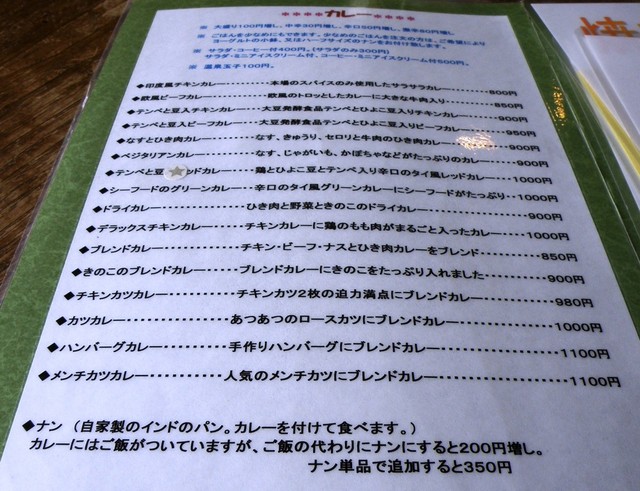 ＊＊＊＊カレー＊＊＊＊
※ 大盛り100円増し、中辛30円増し、辛口50円増し、激辛80円増し
※ ごはんを少なめにもできます。少なめのごはんを注文の方は、ご希望により
ヨーグルトの小鉢、又はハーフサイズのナンをお付け致します。
※ サラダ・コーヒー付400円、(サラダのみ300円)
サラダ・ミニアイスクリーム付、コーヒー・ミニアイスクリーム付500円。
※ 温泉玉子100円。
◆印度風チキンカレー----------本場のスパイスのみ使用したサラサラカレー----------800円
◆欧風ビーフカレー----------欧風のトロッとしたカレーに大きな牛肉入り----------850円
◆テンペと豆入チキンカレー------大豆発酵食品テンペとひよこ豆入りチキンカレー----------900円
◆テンペと豆入ビーフカレー------大豆発酵食品テンペとひよこ豆入りビーフカレー----------950円
◆なすとひき肉カレー----------なす、きゅうり、セロリと牛肉のひき肉カレー----------900円
◆ベジタリアンカレー----------なす、じゃがいも、かぼちゃなどがたっぷりのカレー----------900円
◆テンペと豆 ッドカレー------鶏とひよこ豆とテンペ入り辛口のタイ風レッドカレー----------1000円
◆シーフードのグリーンカレー------辛口のタイ風グリーンカレーにシーフードがたっぷり--1000円
◆ドライカレー----------ひき肉と野菜ときのこのドライカレー----------900円
◆デラックスチキンカレー------チキンカレーに鶏のもも肉がまるごと入ったカレー------1000円
◆ブレンドカレー----------チキン・ビーフ・ナスとひき肉カレーをブレンド----------850円
◆きのこのブレンドカレー------ブレンドカレーにきのこをたっぷり入れました----------900円
◆チキンカツカレー----------チキンカツ2枚の迫力満点にブレンドカレー----------980円
◆カツカレー----------あつあつのロースカツにブレンドカレー----------1000円
◆ハンバーグカレー----------手作りハンバーグにブレンドカレー----------1100円
◆メンチカツカレー----------人気のメンチカツにブレンドカレー----------1100円
◆ナン （自家製のインドのパン。カレーを付けて食べます。）
カレーにはご飯がついていますが、ご飯の代わりにナンにすると200円増し。
ナン単品で追加すると350円